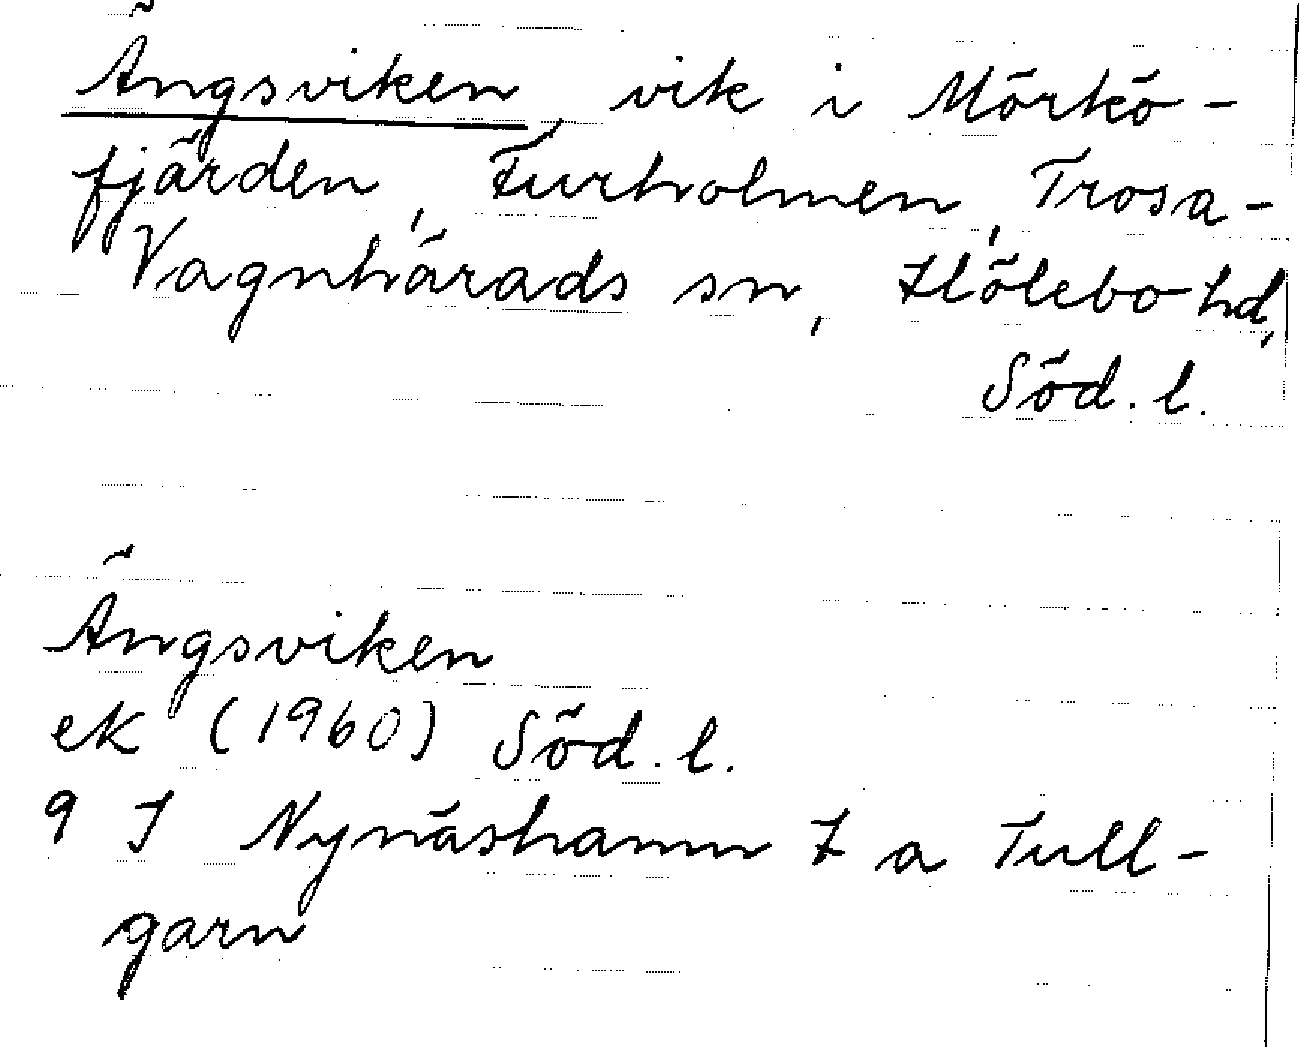 Ängsviken, vik i Mörkö-
fjärden, Furholmen, Trosa-
Vagnhärads sn, Hölebo hd,
Söd. l.
Ängsviken
ek (1960) Söd. l.
9 I Nynäshamn f a Tull-
garn